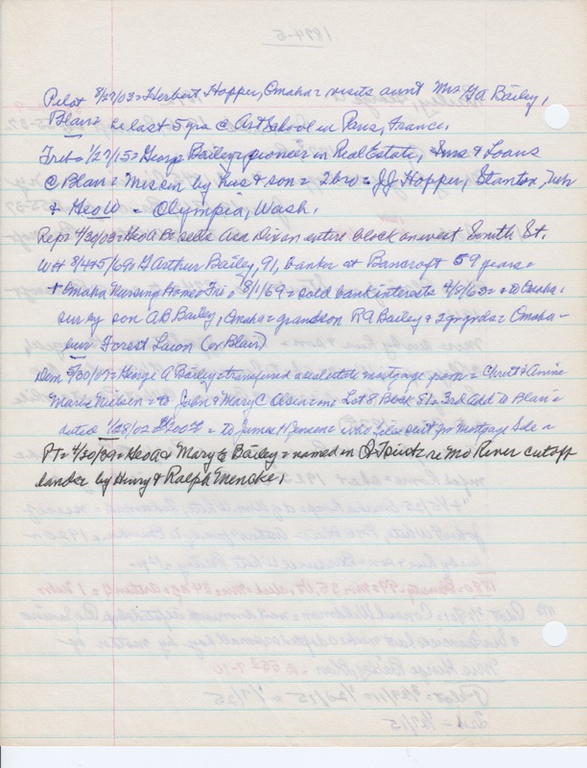 Pilot 8/27/03 = Herbert Hopper, Omaha = visits aunt Mrs GA Bailey,
Blair = he last 5 yrs @ Art School in Paris, France.
Trib = 1/27/15 = George Bailey = pioneer in Real Estate, Ins & Loans
@ Blair = by wife + son = 2 bro = JJ Hopper, Stanton, Neb
+ Geo W = Olympia, Wash.
Rep = 4/30/03 = Geo A B sells Asa Dixon entire block on west South St.
WH 8/4+5/69 = G Arthur Bailey, 91, banker at Bancroft 59 years =
+ Omaha Nursing Home Fri, 8/1/69 = sold bank interests 4/8/63 = to Omaha.
sur by son AB Bailey, Omaha = grandson RA Bailey + 2 = Omaha -
bur Forest Lawn (or Blair)
Dem 5/30/07 = George A Bailey = transferred real estate mortgage from = Christ & Annie
Marie Nielsen = to John & Mary C Olsen = on Lot 8 Block 51 = 3rd Add to Blair =
dated 1/28/02 = = to James H Jensen who files suit for Mortgage Sale =
PT = 4/30/09 = Geo A & Mary E Bailey = named in Q Title suit = re Mo River cutoff
lands = by Henry & Ralph Mencke.